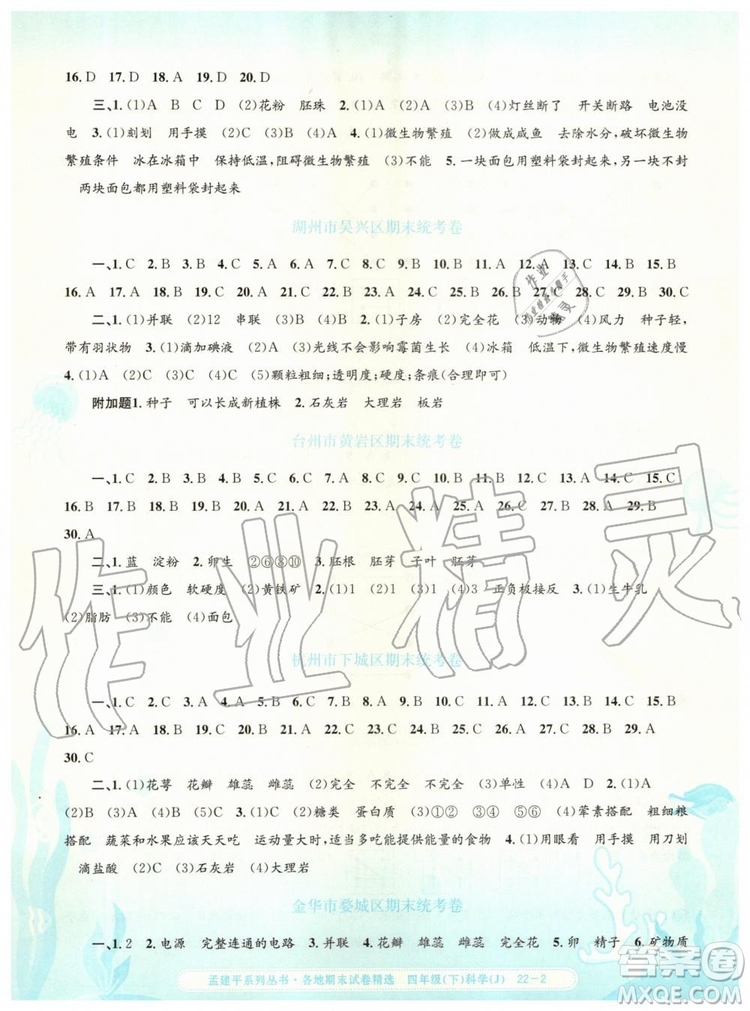 16. D 17. D 18. A 19. D 20. D
三、1. (1)A B C D (2)花粉 胚珠 2. (1)A (2)C (3)B (4)灯丝断了 开关断路 电池没
电 3. (1)刻划 用手摸 (2)C (3)B 4. (1)微生物繁殖 (2)做成咸鱼 去除水分,破坏微生物
繁殖条件 冰在冰箱中 保持低温,阻碍微生物繁殖 (3)不能 5. 一块面包用塑料袋封起来,另一块不封
两块面包都用塑料袋封起来
湖州市吴兴区期末统考卷
一、1. C 2. B 3. B 4. C 5. B 6. C 7. B 8. C 9. A 10. C 11. B 12. A 13. C 14. B 15. B
16. A 17. A 18. A 19. A 20. C 21. B 22. B 23. A 24. B 25. A 26. B 27. A 28. A 29. B 30. C
二、1. (1)并联 (2)12 串联 (3)B 2. (1)子房 (2)完全花 (3)动物 (4)风力 种子轻,
带有羽状物 3. (1)滴加碘液 (2)C (3)光线不会影响霉菌生长 (4)冰箱 低温下,微生物繁殖速度慢
4. (1)C (2)C (3)A (4)B (5)颗粒粗细;透明度;硬度;条痕(合理即可)
附加题1. 种子 可以长成新植株 2. 石灰岩 大理岩 板岩
台州市黄岩区期末统考卷
一、1. C 2. B 3. B 4. B 5. B 6. C 7. B 8. A 9. A 10. B 11. B 12. B 13. C 14. C 15. C
16. B 17. B 18. A 19. A 20. A 21. C 22. C 23. C 24. A 25. A 26. B 27. C 28. A 29. B
30. A
二、1. 蓝 淀粉 2. 卵生 ②⑥⑧⑩ 3. 胚根 胚芽 子叶 胚芽
三、1. (1)颜色 软硬度 (2)黄铁矿 2. (1)1 (2)1 (3)1 (4)3 正负极接反 3. (1)生牛乳
(2)脂肪 (3)不能 (4)面包
杭州市下城区期末统考卷
一、1. C 2. C 3. A 4. A 5. B 6. C 7. B 8. B 9. C 10. A 11. B 12. C 13. C 14. B 15. B
16. A 17. A 18. A 19. C 20. C 21. A 22. C 23. A 24. A 25. B 26. C 27. B 28. B 29. A
30. C
二、1. (1)花萼 花瓣 雄蕊 雌蕊 (2)完全 不完全 完全 不完全 (3)单性 2. (1)A C
(2)B (3)A D 3. (1)B (2)糖类 蛋白质 (3)①② ③④ ⑤⑥ (4)荤素搭配 粗细粮
搭配 蔬菜和水果应该天天吃 运动量大时,适当多吃能提供能量的食物 4. (1)用眼看 用手摸 用刀划
滴盐酸 (2)C (3)石灰岩 (4)大理岩
金华市婺城区期末统考卷
一、1. 2 2. 电源 完整连通的电路 3. 并联 4. 花瓣 雄蕊 雌蕊 5. 卵 精子 6. 矿物质
孟建平系列丛书·各地期末试卷精选 四年级(下)科学(J) 22-2
作业精灵
答案圈
MXQE.COM